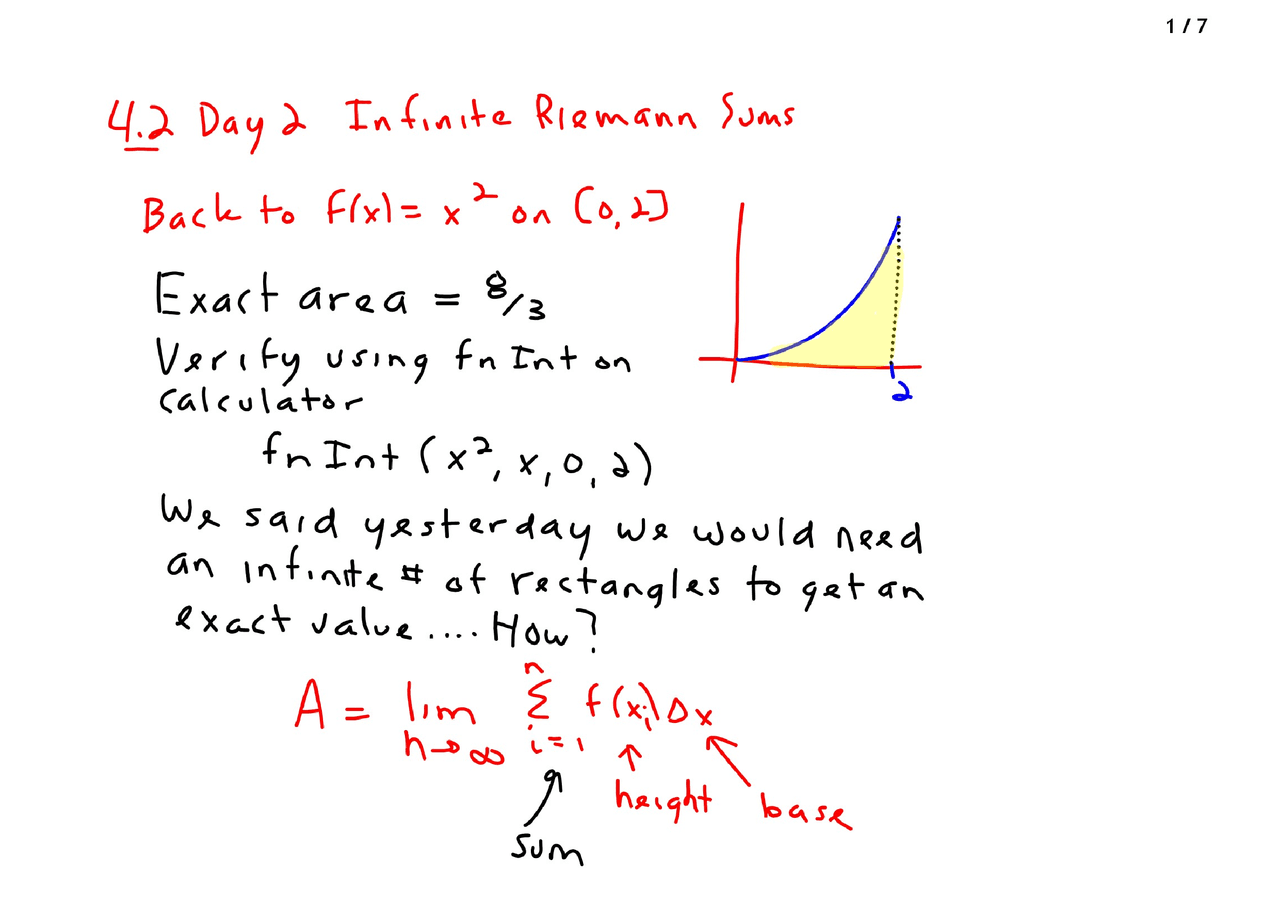 1 / 7
4.2 Day 2 Infinite Riemann Sums
Back to f(x) = x² on [0, 2]
Exact area = 8/3
Verify using fnInt on
calculator
fnInt (x², x, 0, 2)
2
We said yesterday we would need
an infinite # of rectangles to get an
exact value.... How?
A = lim n→∞ n Σ i=1 f(xᵢ) Δx
height
base
sum